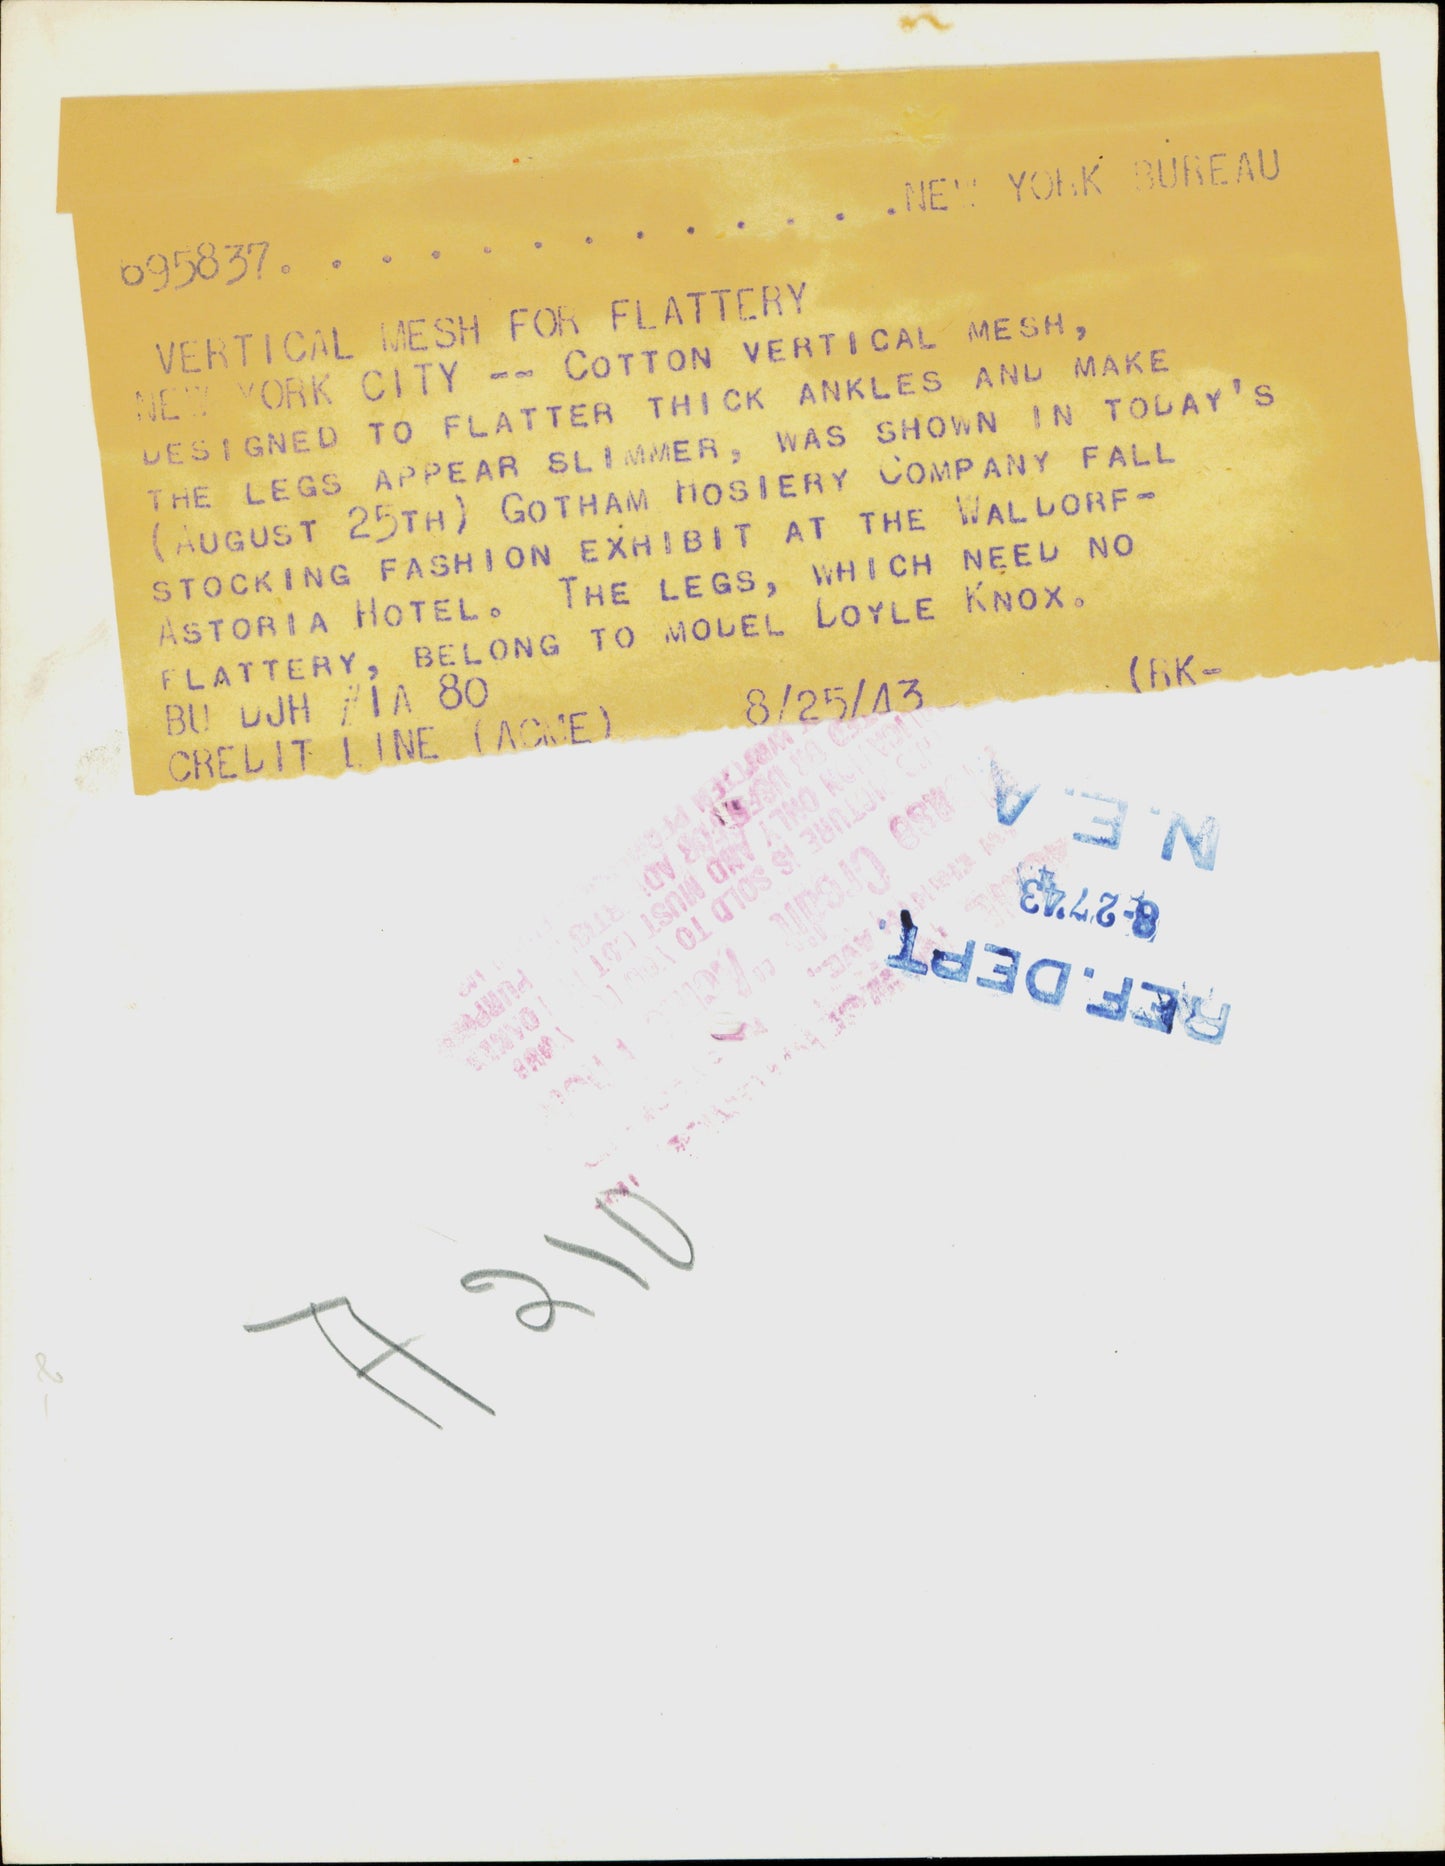 695837. . . . . . . . . . . . .NEW YORK BUREAU
VERTICAL MESH FOR FLATTERY
NEW YORK CITY -- COTTON VERTICAL MESH,
DESIGNED TO FLATTER THICK ANKLES AND MAKE
THE LEGS APPEAR SLIMMER, WAS SHOWN IN TODAY'S
(AUGUST 25TH) GOTHAM HOSIERY COMPANY FALL
STOCKING FASHION EXHIBIT AT THE WALDORF-
ASTORIA HOTEL. THE LEGS, WHICH NEED NO
FLATTERY, BELONG TO MODEL DOYLE KNOX.
BU DJH #1A 80 (RK-
CREDIT LINE (ACME) 8/25/43
N.E.A
8-27-43
REF. DEPT.
PICTURE IS SOLD TO YOU
ONLY AND MUST NOT
Credit
A 210